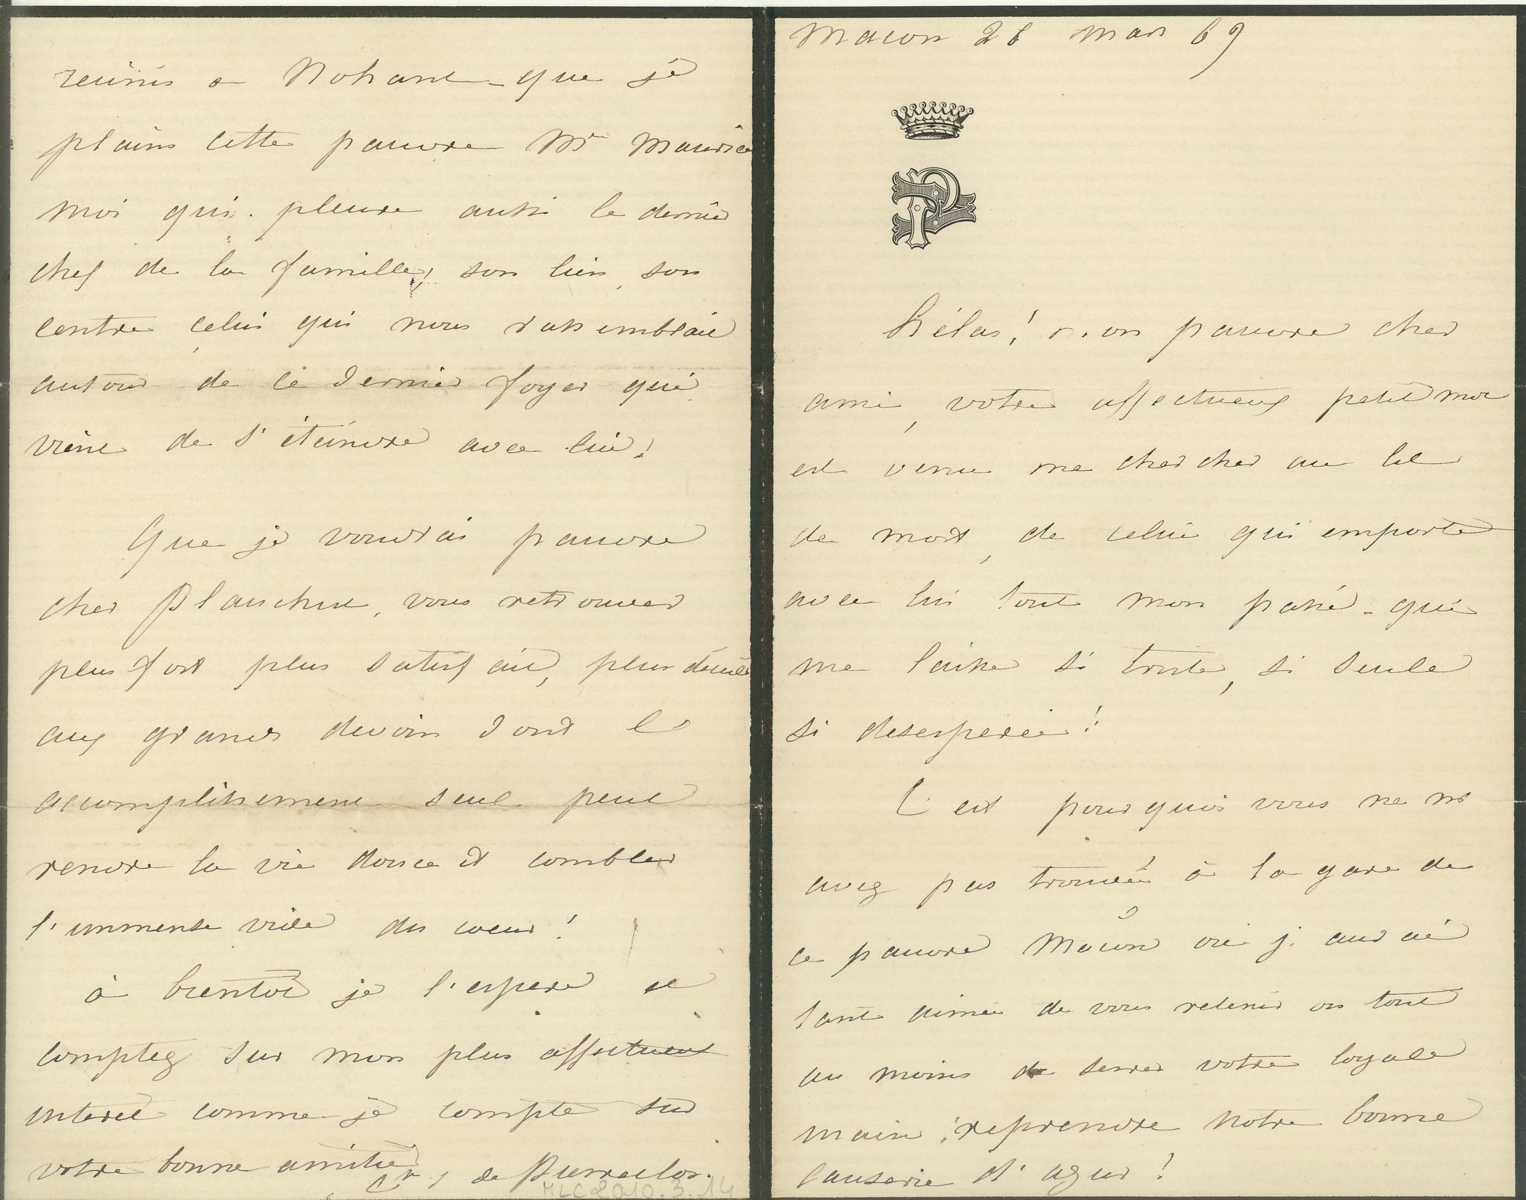 Macon 28 mars 69
P
Hélas! mon pauvre cher
ami, votre affectueux petit mot
est venu me chercher au lit
de mort, de celui qui emporte
avec lui tout mon passé - qui
me laisse si triste, si seule
si desesperée!
C'est pourquoi vous ne m'
avez pas trouvée à la gare de
ce pauvre Mâcon où j'aurai
tant aimée de vous retenir ou tout
au moins de serrer votre loyale
main, reprendre notre bonne
causerie d'azur!
reunis a Nohant - que je
plains cette pauvre Me Maurice
moi qui pleure aussi le dernier
chef de la famille, son lien, son
centre, celui qui nous rassemblait
autour de ce dernier foyer qui
vient de s'éteindre avec lui!
Que je voudrais pauvre
cher Plauchut, vous retrouver
plus fort plus satisfait, plus décidé
aux grands devoirs dont l'
accomplissement seul peut
rendre la vie douce et combler
l'immense vide du coeur!
à bientôt je l'espere et
comptez sur mon plus affectueux
interet comme je compte sur
votre bonne amitié
de Pierreclos.
MLC2010.3.14